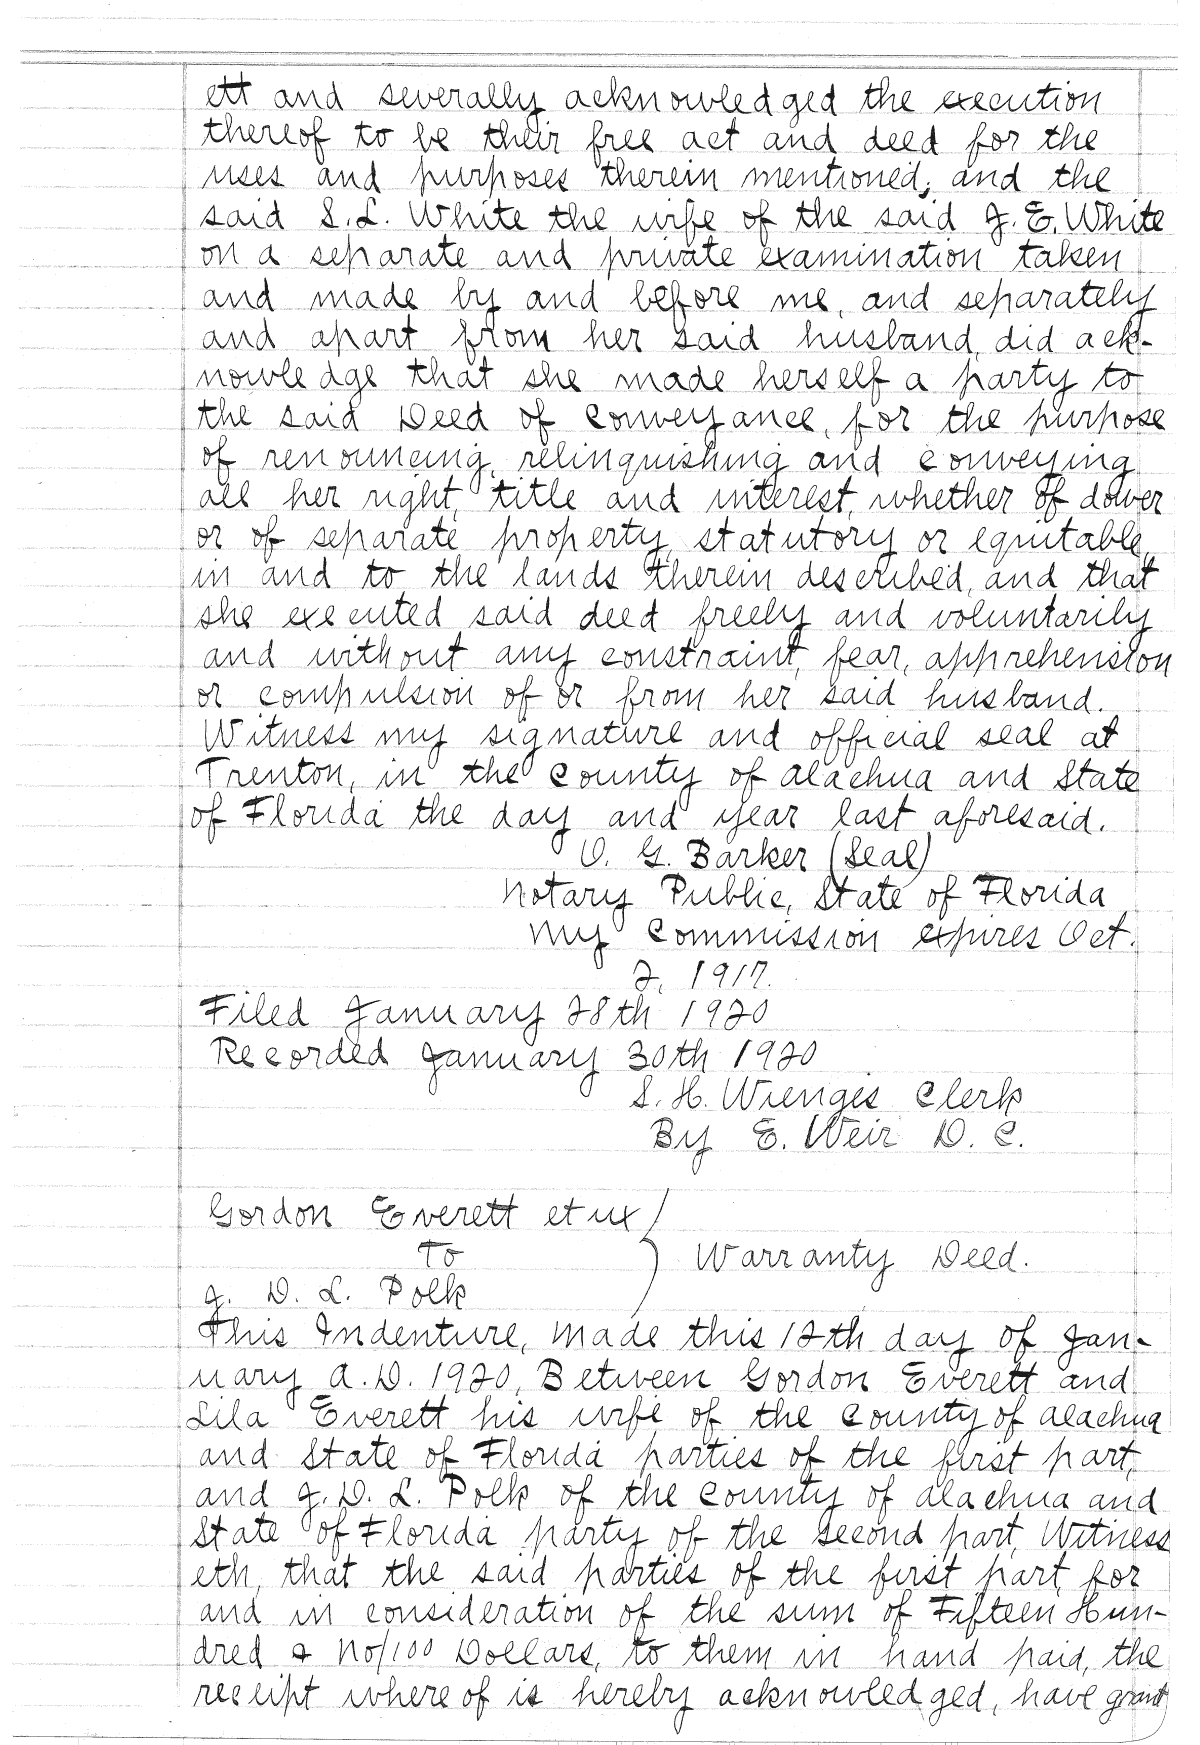 ett and severally acknowledged the execution
thereof to be their free act and deed for the
uses and purposes therein mentioned; and the
said S.L. White the wife of the said J.E. White
on a separate and private examination taken
and made by and before me, and separately
and apart from her said husband, did ack-
nowledge that she made herself a party to
the said Deed of Conveyance, for the purpose
of renouncing, relinquishing and conveying
all her right, title and interest, whether of dower
or of separate property, statutory or equitable,
in and to the lands therein described, and that
she executed said deed freely and voluntarily
and without any constraint, fear, apprehension
or compulsion of or from her said husband.
Witness my signature and official seal at
Trenton, in the County of Alachua and State
of Florida the day and year last aforesaid.
O. G. Barker (Seal)
Notary Public, State of Florida
My Commission expires Oct.
2, 1917.
Filed January 28th 1920
Recorded January 30th 1920
S. H. Wienges Clerk
By E. Weir D. C.
Gordon Everett et ux
To
Warranty Deed.
J. D. L. Polk
This Indenture, Made this 12th day of Jan-
uary A.D. 1920, Between Gordon Everett and
Lila Everett his wife of the County of Alachua
and State of Florida parties of the first part,
and J. D. L. Polk of the County of Alachua and
State of Florida party of the second part, Witness
eth, that the said parties of the first part, for
and in consideration of the sum of Fifteen Hun-
dred & No/100 Dollars, to them in hand paid, the
receipt whereof is hereby acknowledged, have grant